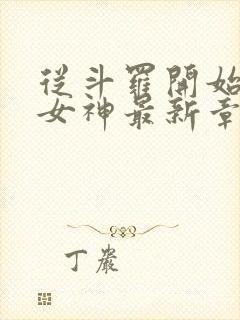 從斗羅開始
女神最新章
丁嚴